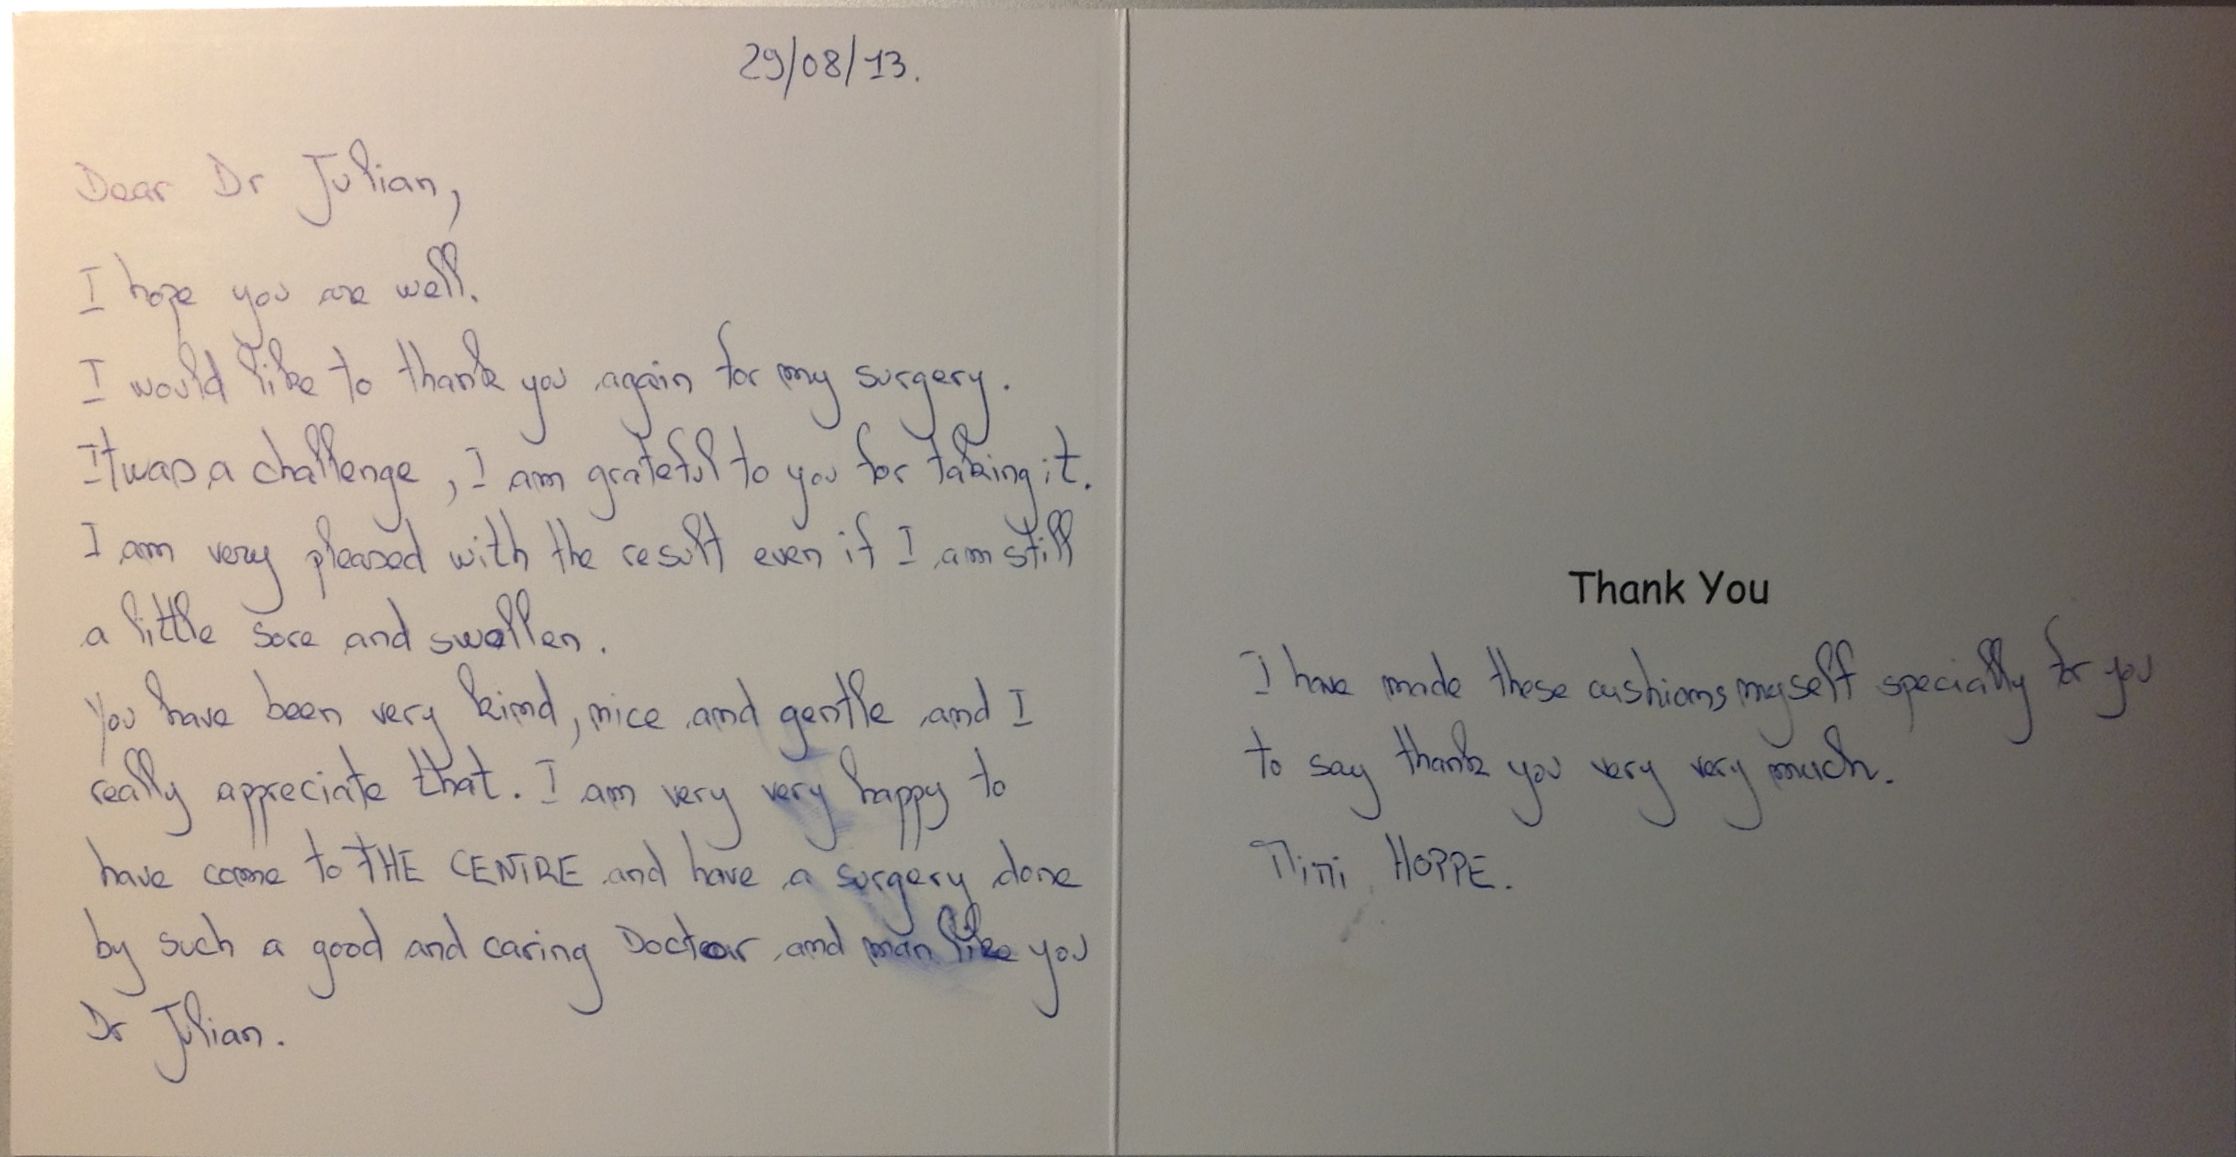 29/08/13.
Dear Dr Julian,
I hope you are well.
I would like to thank you again for my surgery.
It was a challenge, I am grateful to you for taking it.
I am very pleased with the result even if I am still
a little sore and swollen.
You have been very kind, nice and gentle and I
really appreciate that. I am very very happy to
have come to THE CENTRE and have a surgery done
by such a good and caring Doctor and man like you
Dr Julian.
Thank You
I have made these cushions myself specially for you
to say thank you very very much.
Mimi HOPPE.